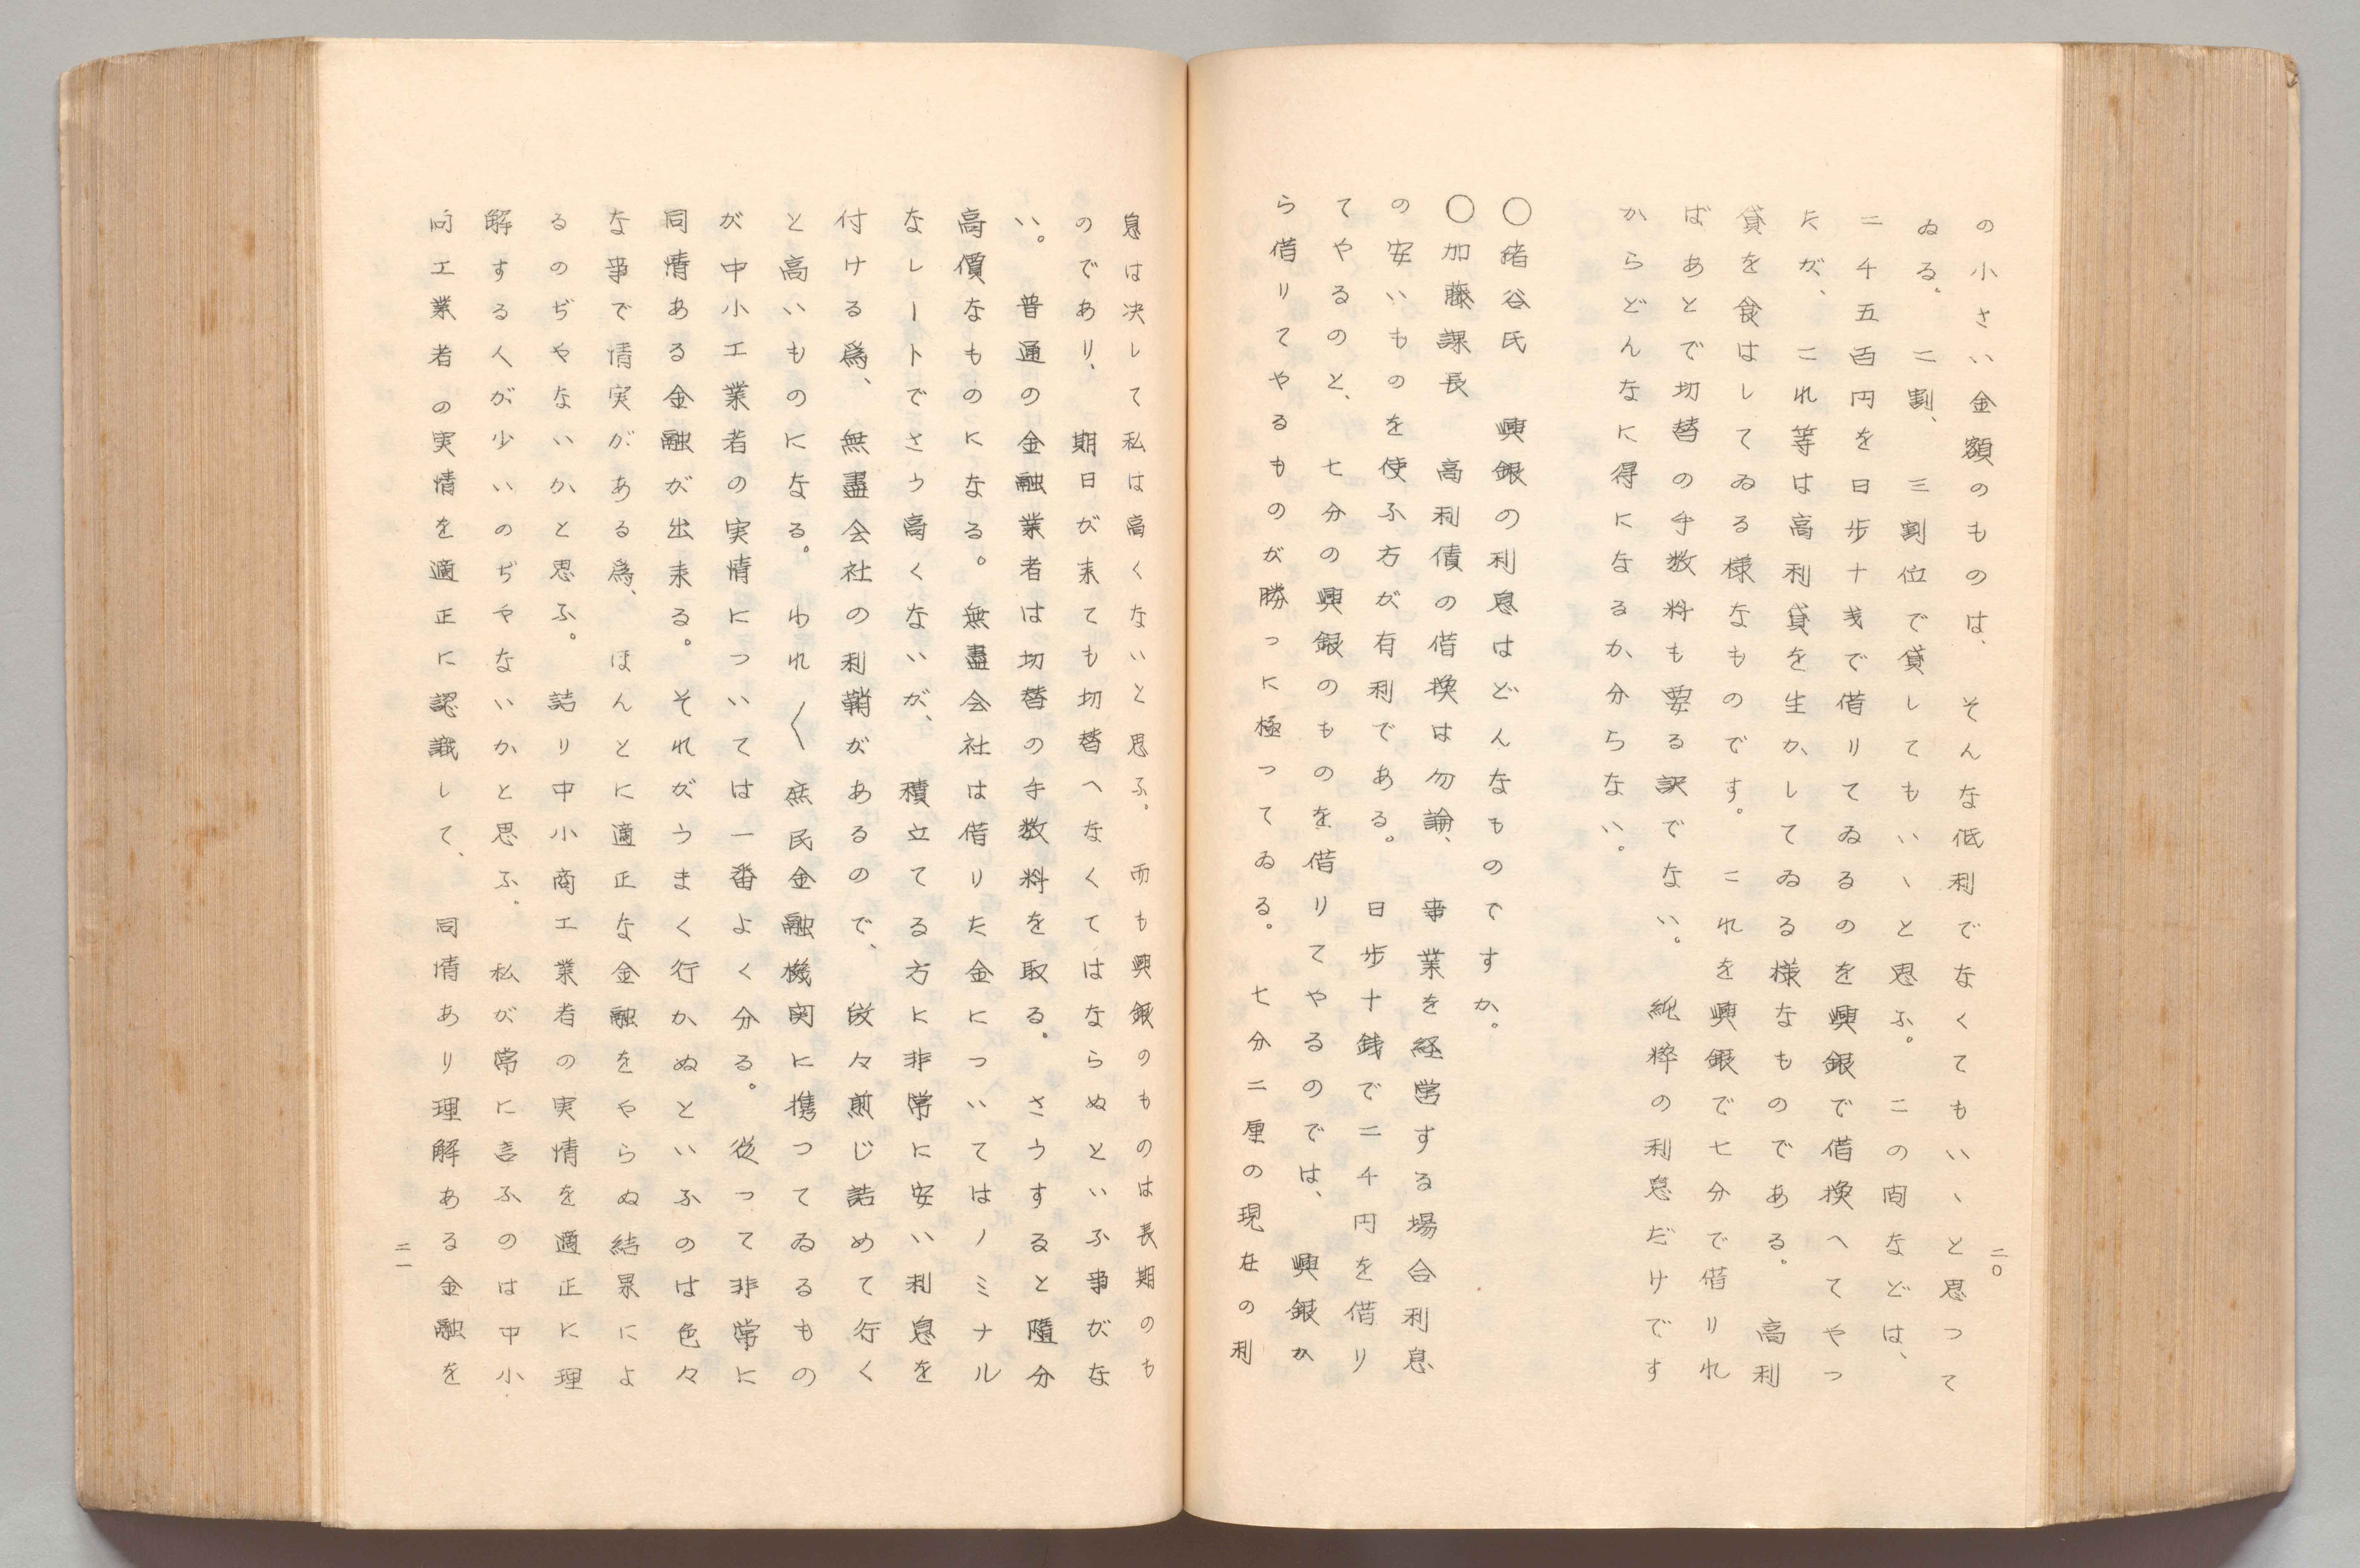 の小さい金額のものは、そんな低利でなくてもいゝと思って
ゐる。二割、三割位で貸してもいゝと思ふ。この間などは、
二千五百円を日歩十戋で借りてゐるのを興銀で借換へてやっ
たが、これ等は高利貸を生かしてゐる様なものである。高利
貸を食はしてゐる様なものです。これを興銀で七分で借りれ
ばあとで切替の手数料も要る訳でない。純粋の利息だけです
からどんなに得になるか分らない。
〇猪谷氏　興銀の利息はどんなものですか。
〇加藤課長　高利債の借換は勿論、事業を経営する場合利息
の安いものを使ふ方が有利である。日歩十銭で二千円を借り
てやるのと、七分の興銀のものを借りてやるのでは、興銀か
ら借りてやるものが勝つに極ってゐる。七分二厘の現在の利
二〇
息は決して私は高くないと思ふ。而も興銀のものは長期のも
のであり、期日が来ても切替へなくてはならぬといふ事がな
い。普通の金融業者は切替の手数料を取る。さうすると随分
高價なものになる。無盡会社は借りた金についてはノミナル
なレートでさう高くないが、積立てる方に非常に安い利息を
付ける爲、無盡会社の利鞘があるので、段々煎じ詰めて行く
と高いものになる。われ〱庶民金融機関に携つてゐるもの
が中小工業者の実情については一番よく分る。従って非常に
同情ある金融が出来る。それがうまく行かぬといふのは色々
な事で情実がある爲、ほんとに適正な金融をやらぬ結果によ
るのぢやないかと思ふ。詰り中小商工業者の実情を適正に理
解する人が少いのぢやないかと思ふ。私が常に言ふのは中小
向工業者の実情を適正に認識して、同情あり理解ある金融を
二一